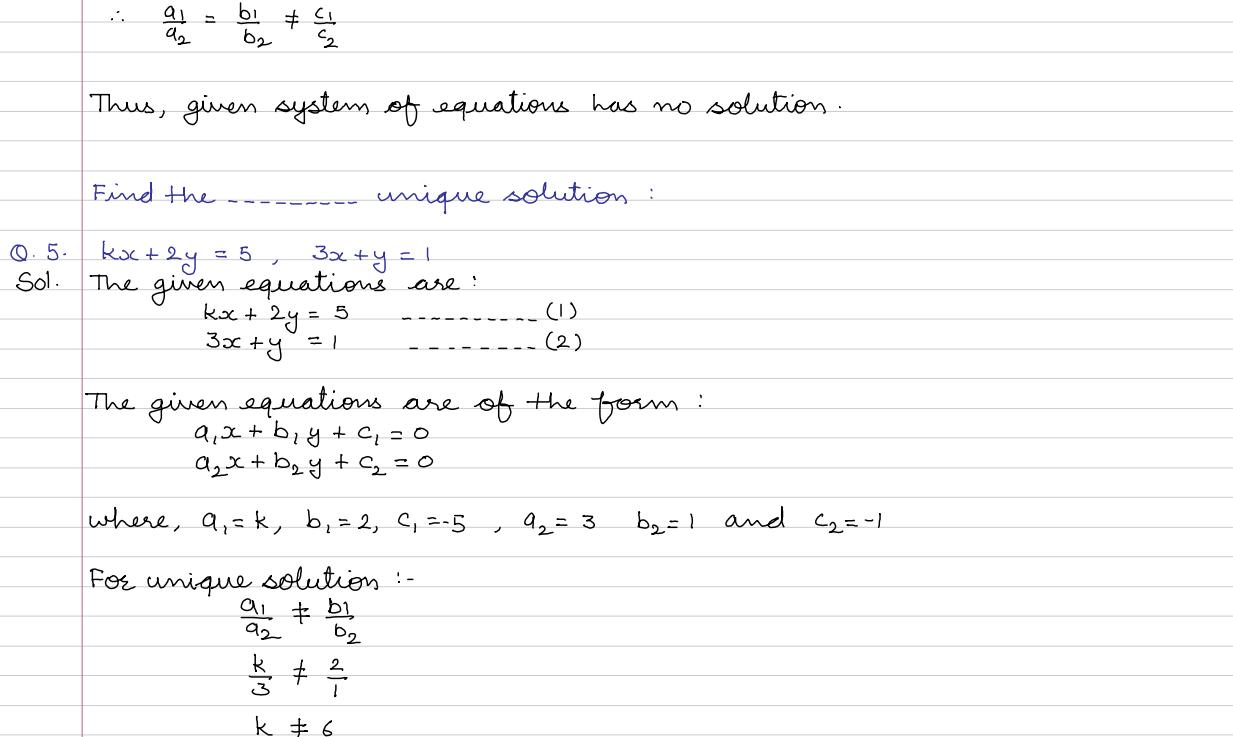 ∴ a₁/a₂ = b₁/b₂ ≠ c₁/c₂
Thus, given system of equations has no solution.
Find the --------- unique solution :
Q. 5. kx + 2y = 5 , 3x + y = 1
Sol. The given equations are :
kx + 2y = 5 ---------- (1)
3x + y = 1 -------- (2)
The given equations are of the form :
a₁x + b₁y + c₁ = 0
a₂x + b₂y + c₂ = 0
where, a₁ = k, b₁ = 2, c₁ = -5 , a₂ = 3 b₂ = 1 and c₂ = -1
For unique solution :-
a₁/a₂ ≠ b₁/b₂
k/3 ≠ 2/1
k ≠ 6